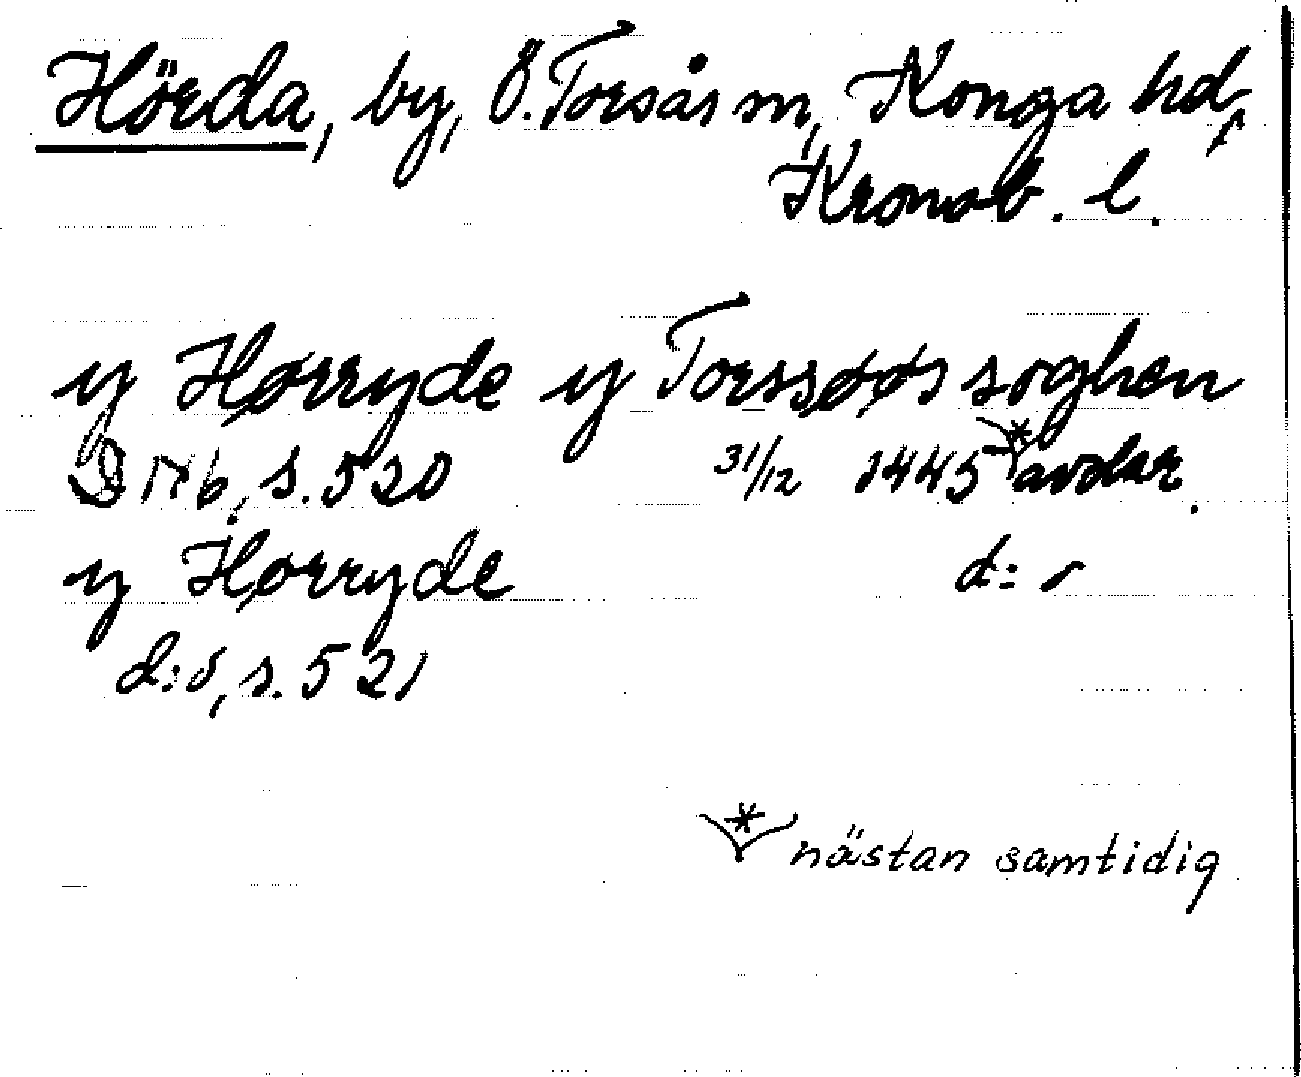 Hörda, by, Ö. Torsås sn, Konga hd,
Kronob. l.
y Hørryde y Torssøøs soghen
D 176, s. 520 31/12 1445 * avskr.
y Hørryde d:o
d:o, s. 521
* nästan samtidig